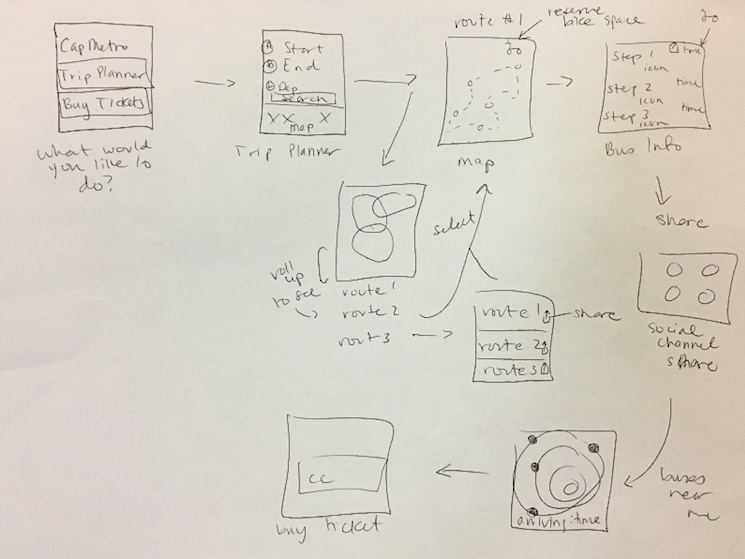 CapMetro
Trip Planner
Buy Tickets
what would
you like to
do?
A Start
B End
Dep
Search
map
Trip Planner
route #1
reserve
bike space
map
Step 1
icon
time
Step 2
icon
time
Step 3
icon
time
Bus Info
share
social
channel
share
roll
up
to see
route 1
route 2
rout 3
select
route 1
share
route 2
route 3
buses
near
me
arriving:time
cc
buy ticket